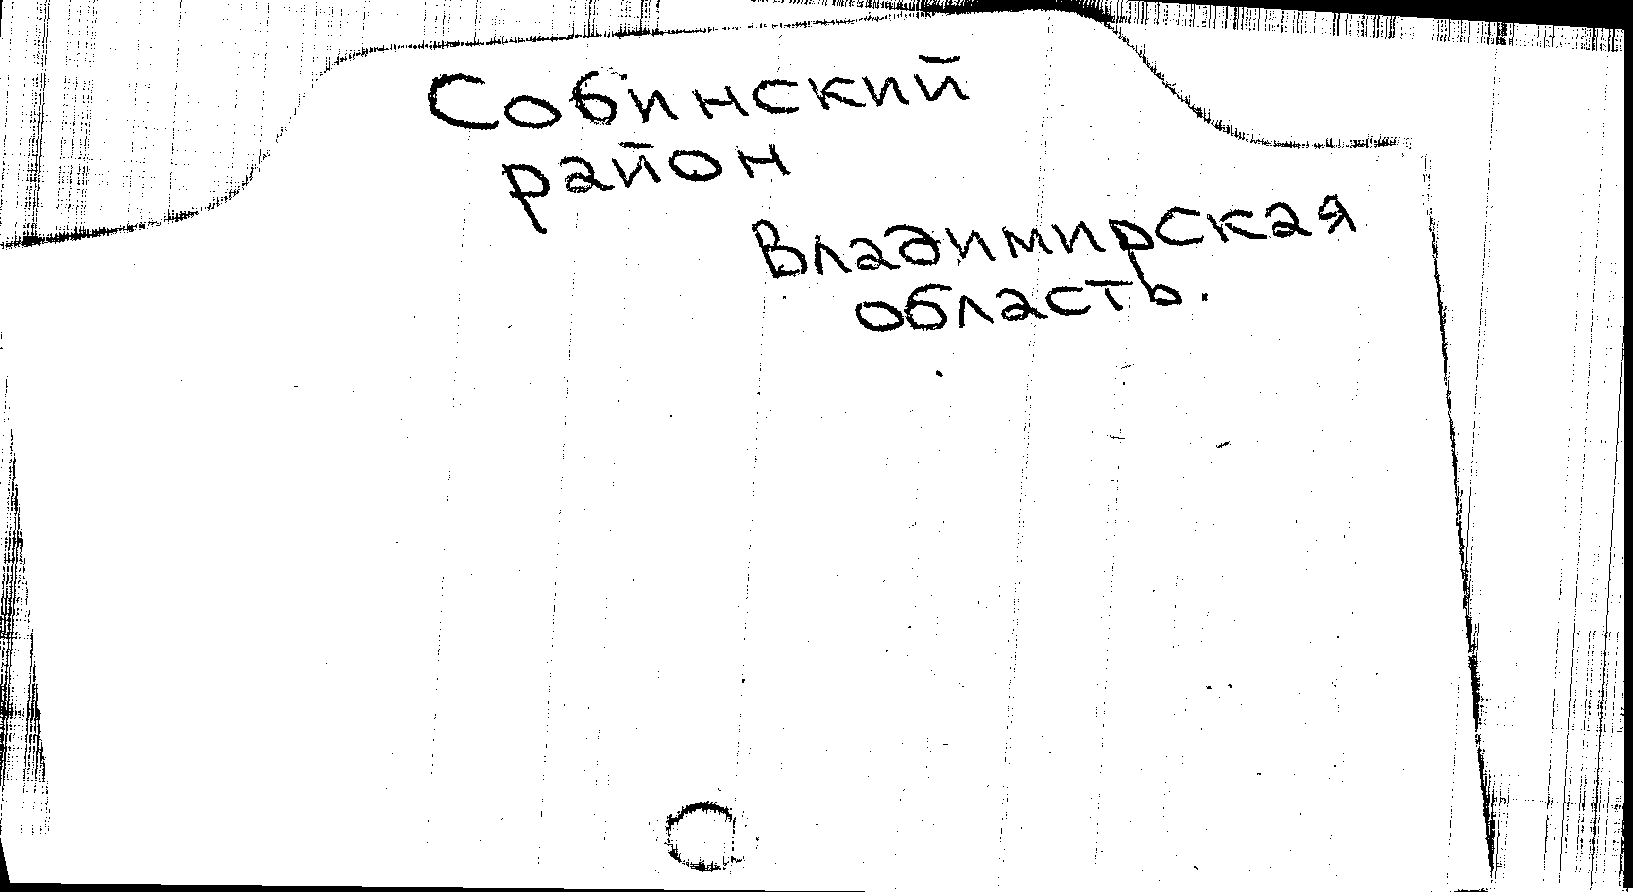 Собинский
район
Владимирская
область.